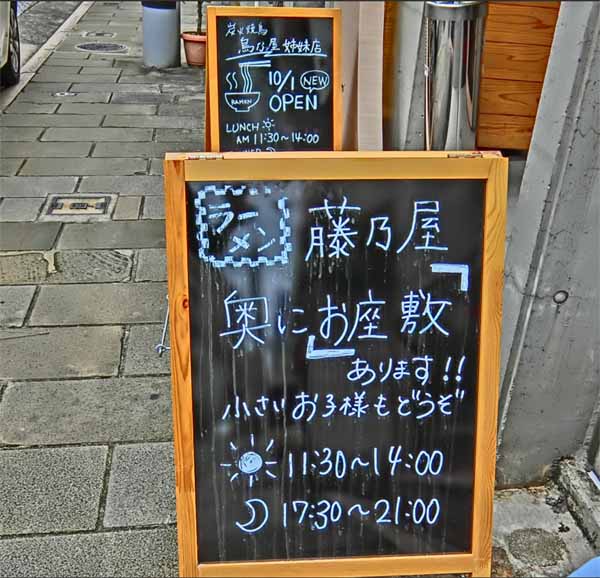 炭火焼鳥
鳥乃屋 姉妹店
10/1 NEW
OPEN
RAMEN
LUNCH
AM 11:30~14:00
ラーメン
藤乃屋
奥に「お座敷」
あります!!
小さいお子様もどうぞ
11:30~14:00
17:30~21:00